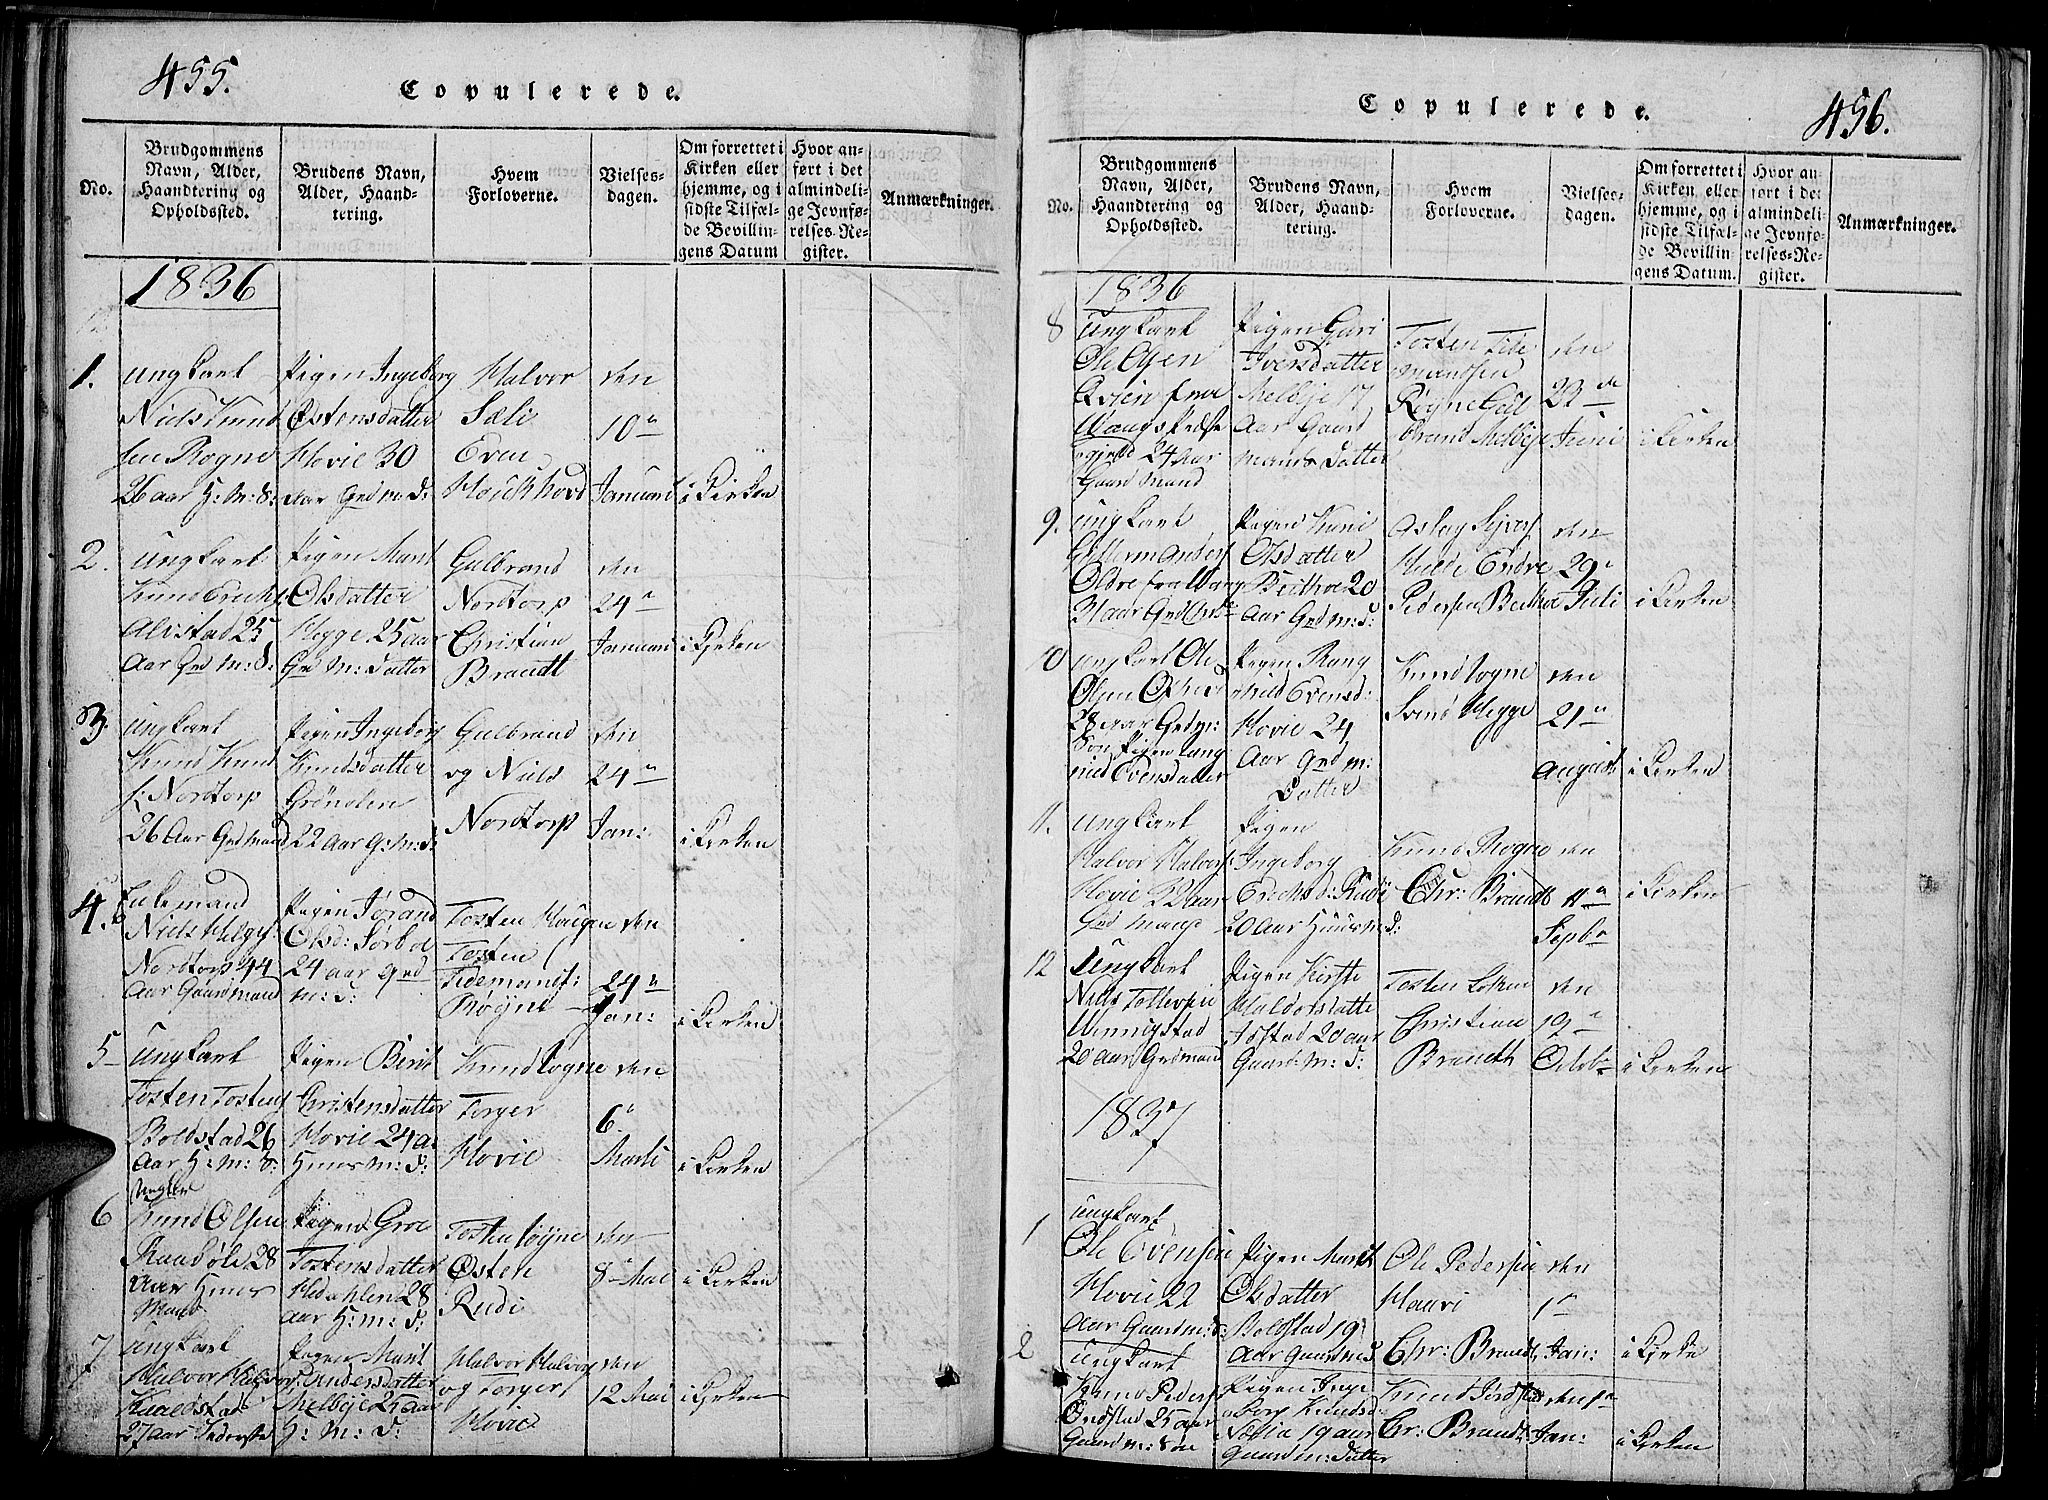 455.
Copulerede.
No.
Brudgommens
Navn, Alder,
Haandtering og
Opholdssted.
Brudens Navn,
Alder, Haand-
tering.
Hvem
Forloverne.
Vielses-
dagen.
Om forrettet i
Kirken eller
hjemme, og i
sidste Tilfæl-
de Bevillin-
gens Datum
Hvor an-
ført i det
almindeli-
ge Jevnfø-
relses-Re-
gister.
Anmærkninger.
1836
1.
Ungkarl
Niels Knud
sen Rogne
26 aar H: M: S:
Pigen Ingeborg
Østensdatter
Hovie 30
aar Grd m: d:
Halvor
Sæli
Even
den
10de
Januari
i Kirken
2.
Ungkarl
Knud Erichs
Alvstad 25
Aar Grd m: S:
Pigen Marit
Olsdatter
Hegge 25 aar
Gr M: Datter
Gulbrand
Nordtorp
Christian
Brandt
den
24de
Januari
i Kirken
3.
Ungkarl
Knud Knud
s: Nordtorp
26 Aar Grd mand
Pigen Ingeborg
Knudsdatter
Grønolen
22 Aar G: M: d:
Gulbrand
og Niels
Nordtorp
den
24de
Jan:
i Kirken
4.
Enkemand
Niels Helges
Nordtorp 44
Aar Gaardmand
Pigen Jørand
Olsd: Sørboe
24 aar Grd
m: d:
Tosten Haugen
Tosten
Tidemands:
Røgne
den
24de
Jan:
i Kirken
5
Ungkarl
Tosten Tostens
Boldstad 26
Aar H: M: S:
Pigen Birit
Christensdatter
Hovie 24 a
Huus m: d:
Knud Rogne
Torger
Hovie
den
6te
Marti
i Kirken
6
Ungkar
Knud Olsen
Raabøle 28
Aar Huus
Mand
Pigen Groe
Tostensdatter
Hedahlen 28
aar H: m: d:
Tosten Røgne
Østen
Rudi
den
8de Mai
i Kirken
7
Ungkarl
Halvor Halvors
27 aar Inderste
Pigen Marit
Andersdatter
Melbye 25 aar
H: M: D:
Halvor Halvors
og Torger
Hovie
den
12 Mai
i Kirken
456.
Copulerede.
No.
Brudgommens
Navn, Alder,
Haandtering og
Opholdssted.
Brudens Navn,
Alder, Haand-
tering.
Hvem
Forloverne.
Vielses-
dagen.
Om forrettet i
Kirken eller
hjemme, og i
sidste Tilfæl-
de Bevillin-
gens Datum.
Hvor an-
ført i det
almindeli-
ge Jevnfø-
relses-Re-
gister.
Anmærkninger.
1836
8
Ungkarl
Ole Olsen
Qvien fra
Wangs Præste
gjeld 24 Aar
Gaard Mand
Pigen Guri
Iversdatter
Melbye 17
Aar Gaard
mands Datter
Tosten Tide
mandsen
Røgne Gul
brand Melbye
den
23de
Juni
i Kirken
9.
Ungkarl
Guttorm Anders
Oldre fra Wang
Pigen Kari
Olsdatter
Beithoe 20
Aar Grd m: d:
Aslag Sjvers
Hulde Endre
Pedersen Beithoe
den
29de
Juli
i Kirken
10
Ungkarl Ole
28 aar Grd m:
Søn Pigen Rang
nild Evensdatter
Pigen Rang
nild Evensd:
Hovie 24
Aar Grd m:
Datter
Knud Rogne
Svend Hegge
den
21de
August
i Kirken
11.
Ungkarl
Halvor Halvors
Hovie 22 aar
Grd mand
Pigen
Ingeborg
Erichsd: Rudi
20 Aar Huus m: d:
Knud Rogne
Chr: Brandt
den
11de
Sepbr
i Kirken
12
Ungkarl
Niels Tollevsen
Wennigstad
20 aar Grd mand
Pigen Kirsti
Haldorsdatte
Tostad 20 aar
Gaard: M: d:
Tosten Loken
Christian
Brandth
den
19de
Octobr
i Kirken
1837
1
Ungkarl
Ole Evensen
Hovie 22
Aar Gaard m: S:
Pigen Marit
Olsdatter
Boldstad 19
Aar Gaard m d
Ole Pedersen
Hauri
Chr: Brandt
den
1te
Jan:
i Kirke
2
Ungkarl
Knud Peders
Øndstad 25 aar
Gaard m: Søn
Pigen Inge
borg Knudsd
19 aar
Gaard m: Datter
Knud
Chr: Brandt
den 1te
Jan:
i Kirken